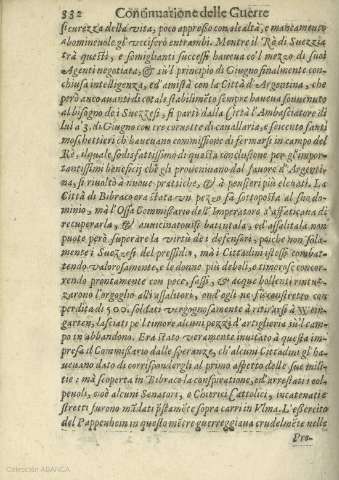 332 Continuatione delle Guerre
sicurezza della vita, poco appresso con slealtà, e mancamento
abominevole gl'vcciserò entrambi. Mentre il Rà di Suezzia
trà questi, e somiglianti successi haueua co'l mezzo di suoi
Agenti negotiata, & su'l principio di Giugno finalmente con-
chiusa intelligenza, ed amistà con la Città d'Argentina, che
però anco auanti di cotale stabilimēto sempre haueua souuenuto
al bisogno de i Suezzesi, si partì dalla Città l'Ambasciatore di
lui a 3. di Giugno con tre cornette di cauallaria, e seicento fanti
moschettieri ch'haueano commissione di fermarsi in campo del
Rè, il quale sodisfattissimo di questa conclusione per gl'impor-
tantissimi beneficij che gli proueniuano dal fauore d'Argenti-
na, si riuoltò à nuoue pratiche, & à pensieri più eleuati. La
Città di Bibrac ora stata vn pezzo fà sottoposta al suo do-
minio, mà l'Ossa Commissario dell'Imperatore s'affaticaua di
recuperarla, & auuicinatouisi battutala, ed assalitala non
puote però superare la virtù de i defensori, poiche non sola-
mente i Suezzesi del pressidio, mà i Cittadini istessi combat-
tendo valorosamente, e le donne più deboli, e timorose concor-
rendo prontamente con pece, sassi, & acque bollenti rintuz-
zarono l'orgoglio à gl'assalitori, ond'egli ne fù costretto con
perdita di 500. soldati vergognosamente à ritirarsi à Wein-
garten, lasciati pe'l timore alcuni pezzi d'artigleria sù'l cam-
po in abbandono. Era stato veramente inuitato à questa im-
presa il Commissario dalle speranze, ch'alcuni Cittadini gl'ha-
ueuano dato di corrispondergli al primo aspetto delle sue mili-
tie: mà scoperta in Bibrac la conspiratione, ed arrestati i col-
peuoli, cioè alcuni Senatori, e Chierici Cattolici, incatenati e
stretti furono mādati p̄stamēte sopra carri in Vlma. L'essercito
del Pappenheim in questo mētre guerreggiaua crudelmēte nelle
Pro-
Colección ABANCA